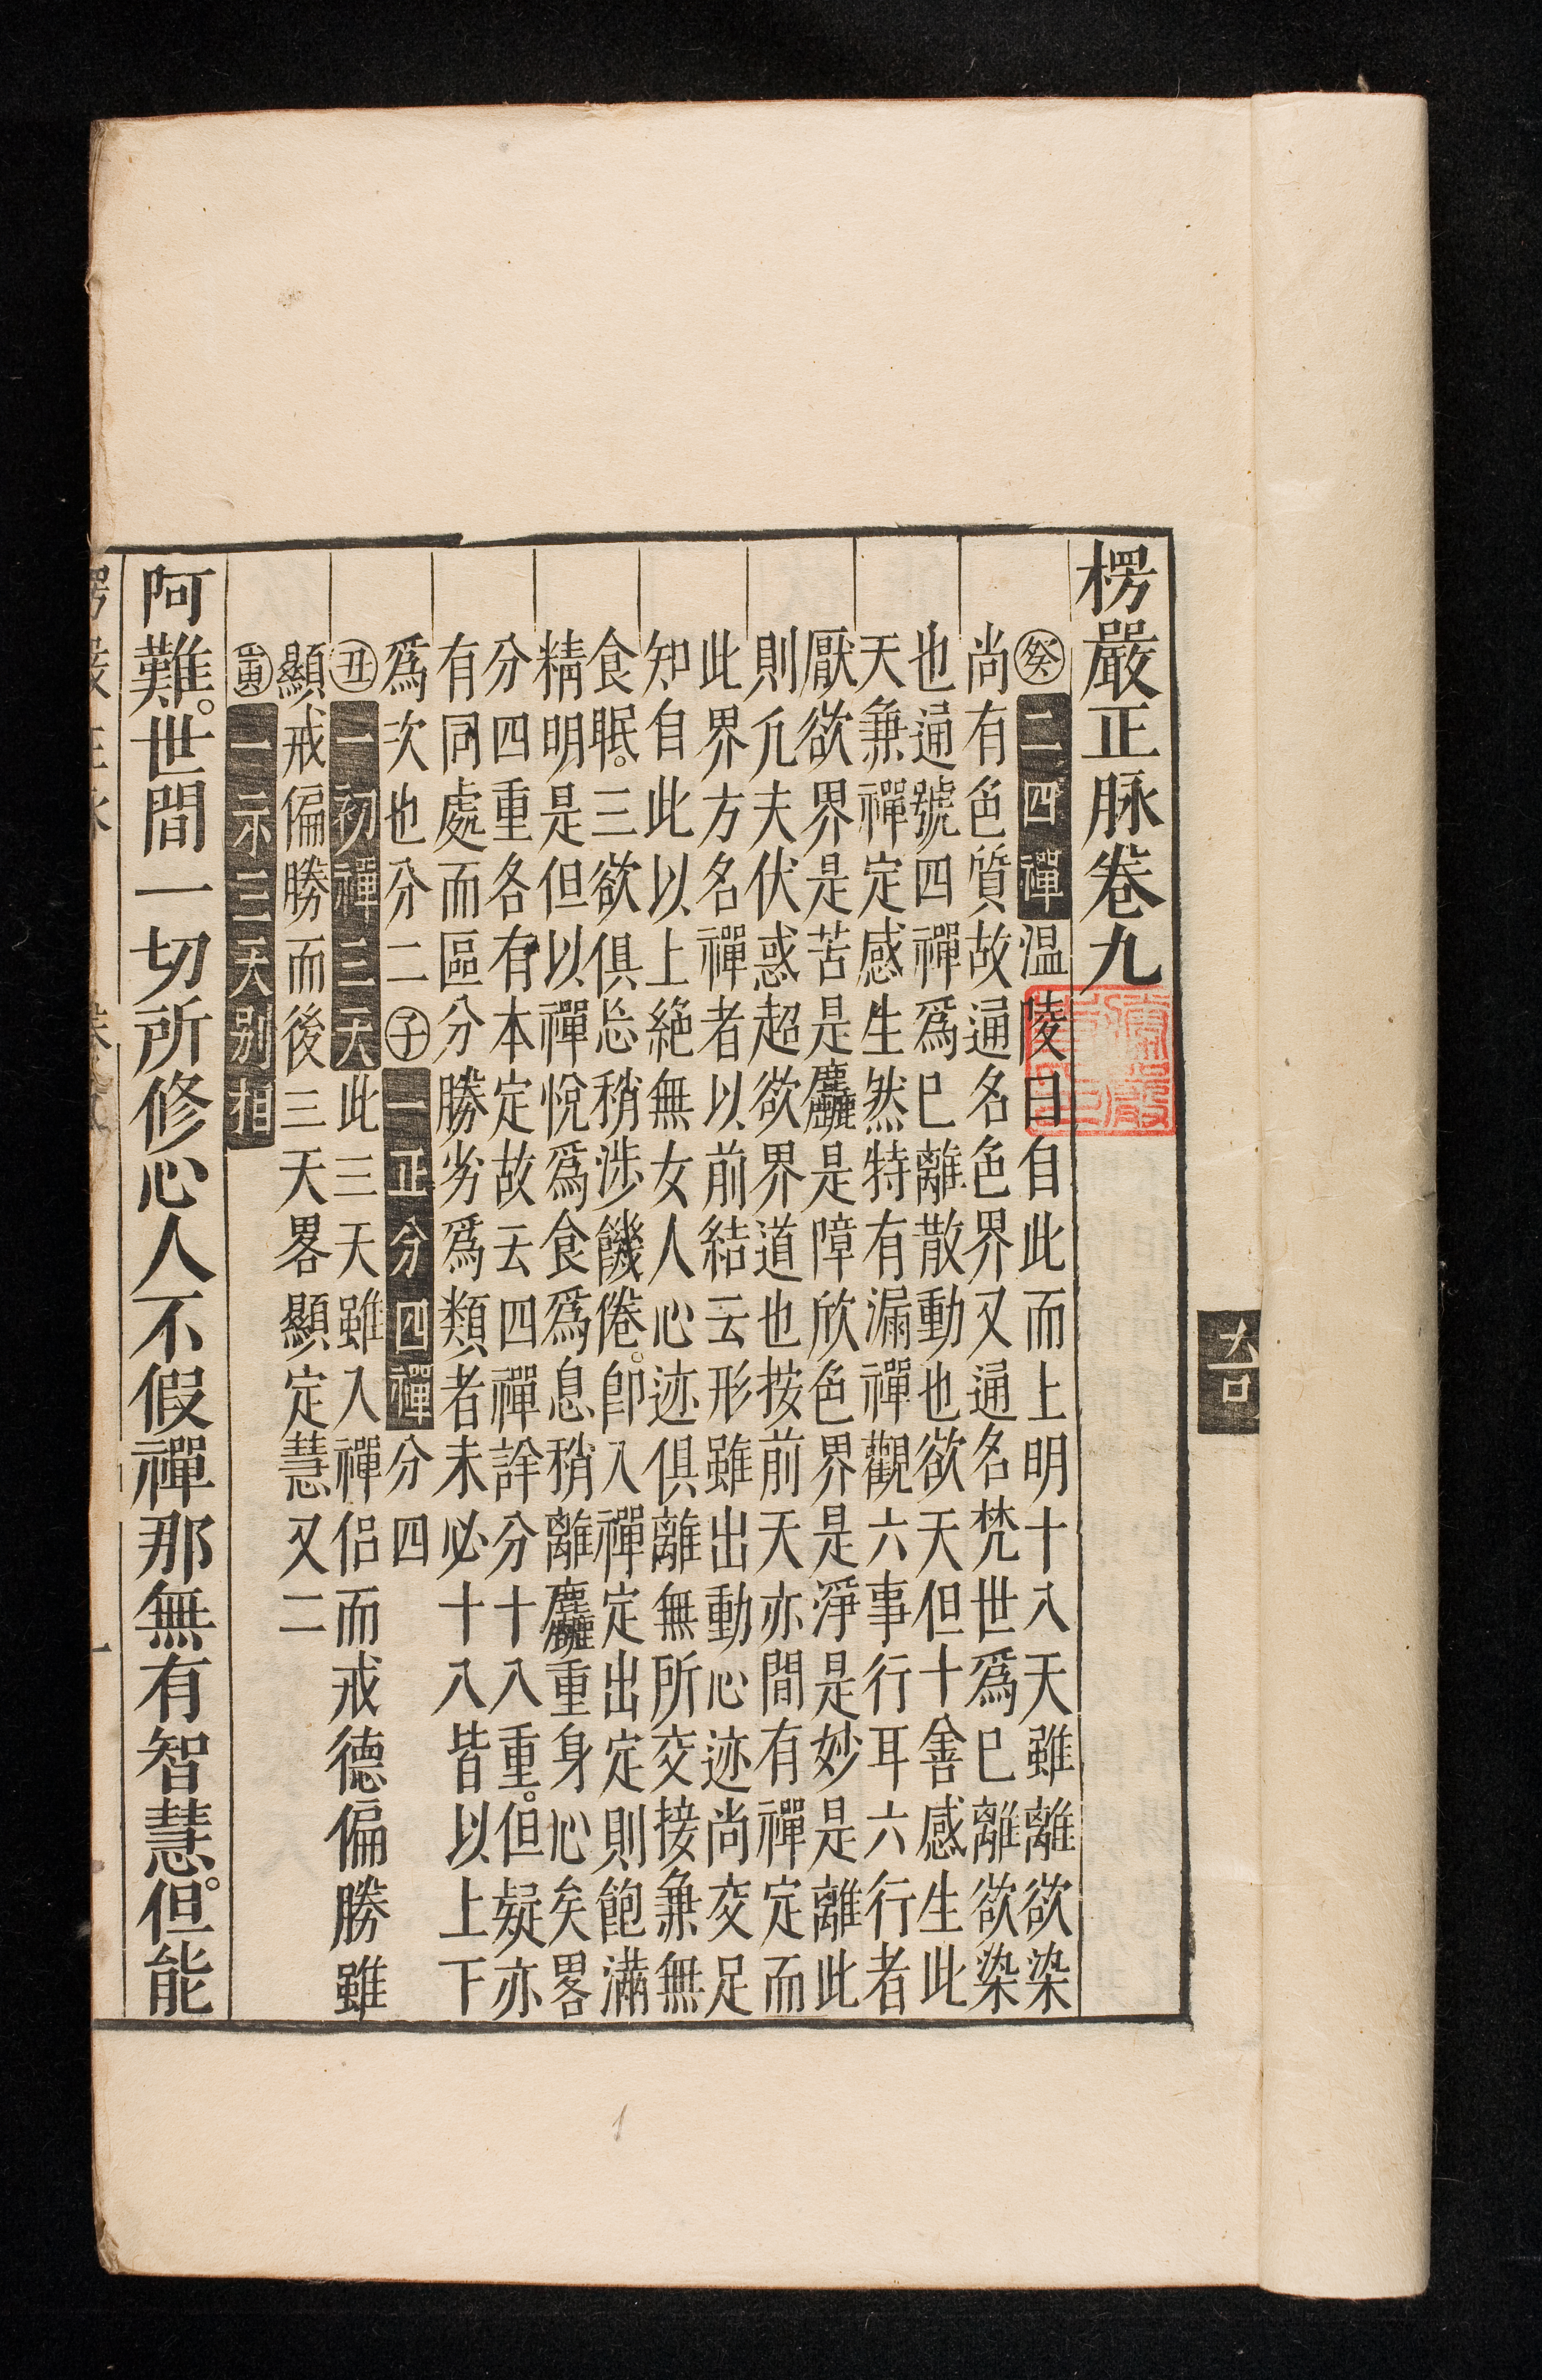 楞嚴正脉卷九
癸二四禪温陵曰自此而上明十八天雖離欲染
尚有色質故通名色界又通名梵世爲已離欲染
也通號四禪爲已離散動也欲天但十善感生此
天兼禪定感生然特有漏禪觀六事行耳六行者
厭欲界是苦是麤是障欣色界是淨是妙是離此
則凢夫伏惑超欲界道也按前天亦間有禪定而
此界方名禪者以前結云形雖出動心迹尚交足
知自此以上絶無女人心迹俱離無所交接兼無
食眠。三欲俱忩稍涉饑倦。即入禪定出定則飽滿
精明是但以禪悅爲食爲息稍離麤重身心矣畧
分四重各有本定故云四禪詳分十八重。但疑亦
有同處而區分勝劣爲類者未必十八皆以上下
爲次也分二子一正分四禪分四
丑一初禪三天此三天雖入禪侣而戒德偏勝雖
顯戒偏勝而後三天畧顯定慧又二
寅一示三天别相
阿難。世間一切所修心人不假禪那無有智慧。但能